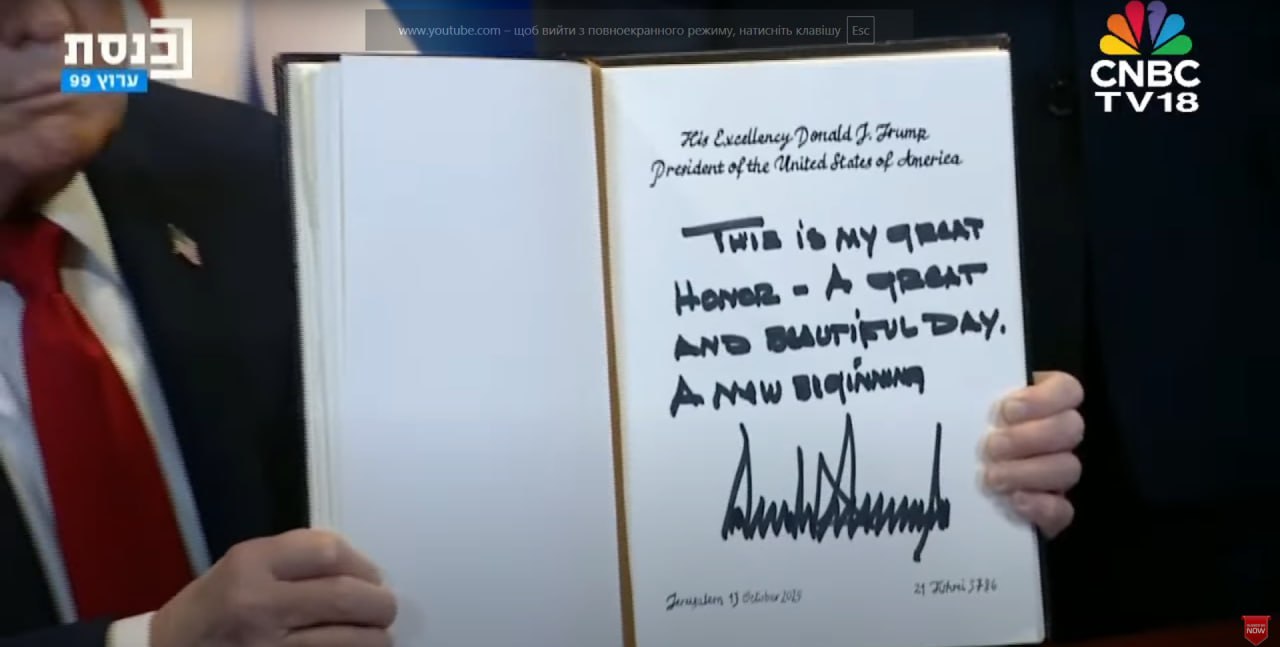 www.youtube.com – щоб вийти з повноекранного режиму, натисніть клавішу Esc
כנסת
ערוץ 99
CNBC
TV18
His Excellency Donald J. Trump
President of the United States of America
THIS IS MY GREAT
HONOR - A GREAT
AND BEAUTIFUL DAY.
A NEW BEGINNING
Jerusalem 13 October 2025
21 Tishrei 5786
NOW